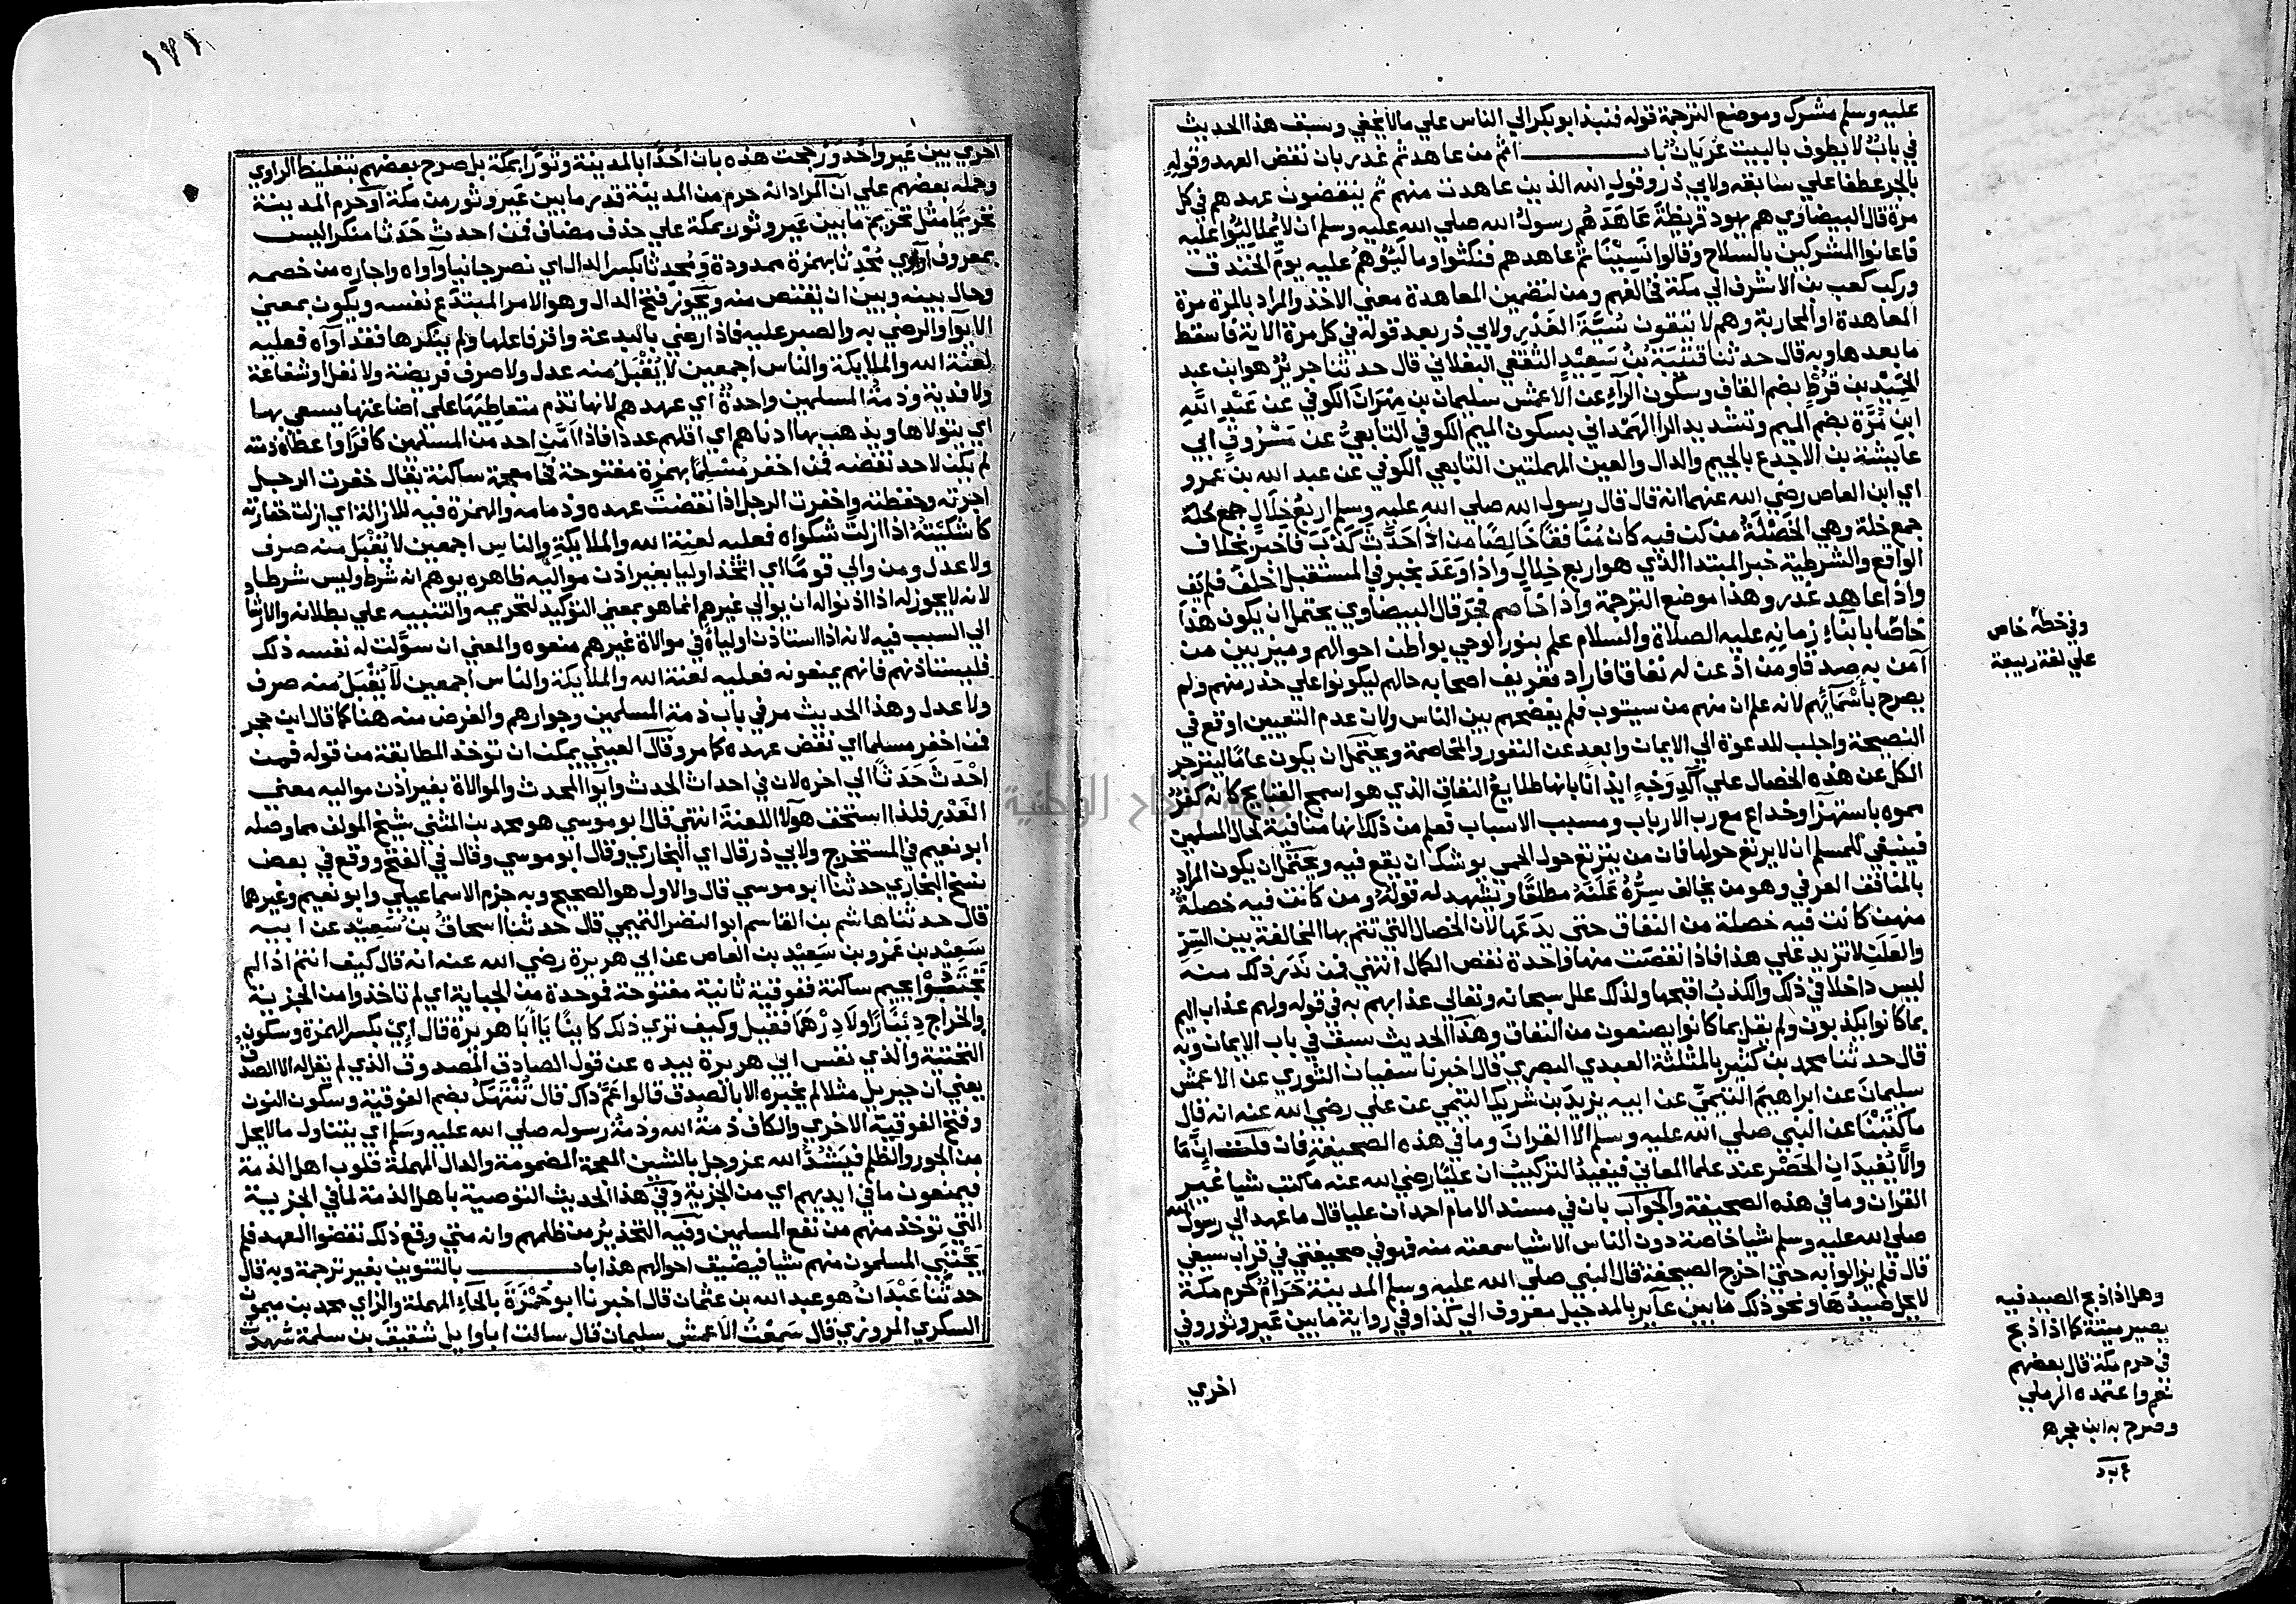 عليه وسلم مشرك وموضع الترجمة قوله فنبذ ابو بكر الي الناس علي ما لا يخفي وسبق هذا الحديث
في باب لا يطوف بالبيت عريان باب اثم من عاهد ثم غدر بان نقض العهد وقوله
بالجر عطفا علي سابقه ولابي ذر وقول الله الذين عاهدت منهم ثم ينقضون عهدهم في كل
مرة قال البيضاوي هم يهود قريظة عاهدهم رسول الله صلي الله عليه وسلم ان لا يمالئوا عليه
فاعانوا المشركين بالسلاح وقالوا نسينا ثم عاهدهم فنكثوا ومالئوهم عليه يوم الخندق
وركب كعب بن الاشرف الي مكة فحالفهم ومن لتضمين المعاهدة معني الاخذ والمراد بالمرة مرة
المعاهدة او المحاربة وهم لا يتقون سبة الغدر ولابي ذر بعد قوله في كل مرة الاية فاسقط
ما بعدها وبه قال حدثنا قتيبة بن سعيد الثقفي البغلاني قال حدثنا جرير هو ابن عبد
الحميد بن قرط بضم القاف وسكون الراء عن الاعمش سليمان بن مهران الكوفي عن عبد الله
ابن مرة بضم الميم وتشديد الرا الهمداني بسكون الميم الكوفي التابعي عن مسروق ابي
عايشة بن الاجدع بالجيم والدال والعين المهملتين التابعي الكوفي عن عبد الله بن عمرو
اي ابن العاص رضي الله عنهما انه قال قال رسول الله صلي الله عليه وسلم اربع خلال جمع خلة
جمع خلة وهي الخصلة من كن فيه كان منافقا خالصا من اذا حدث كذب فاخبر بخلاف
الواقع والشرطية خبر المبتدا الذي هو اربع خلال واذا وعد بخير في المستقبل اخلف فلم يف
واذا عاهد غدر وهذا موضع الترجمة واذا خاصم فجر قال البيضاوي يحتمل ان يكون هذا
خاصا بابناء زمانه عليه الصلاة والسلام علم بنور الوحي بواطن احوالهم وميز بين من
آمن به صدقا ومن اذعن له نفاقا فاراد تعريف اصحابه حالهم ليكونوا علي حذر منهم ولم
يصرح باسمائهم لانه علم ان منهم من سيتوب فلم يفضحهم بين الناس ولان عدم التعيين اوقع في
النصيحة واجلب للدعوة الي الايمان وابعد عن النفور والمخاصمة ويحتمل ان يكون عاما لينزجر
الكل عن هذه الخصال علي آكد وجه ايذانا بانها طلايع النفاق الذي هو اسمج القبايح كانه كفر
مموه باستهزا وخداع مع رب الارباب ومسبب الاسباب فعلم من ذلك انها منافية لحال المسلمين
فينبغي للمسلم ان لا يرتع حولها فان من يرتع حول الحمي يوشك ان يقع فيه ويحتمل ان يكون المراد
بالمنافق العرفي وهو من يخالف سره علنه مطلقا ويشهد له قوله ومن كانت فيه خصلة
منهن كانت فيه خصلة من النفاق حتي يدعها لان الخصال التي تتم بها المخالفة بين السر
والعلن لا تزيد علي هذا فاذا نقصت منها واحدة نقص الكمال انتهي فمن ندر ذلك منه
ليس داخلا في ذلك والكذب اقبحها ولذلك علل سبحانه وتعالي عذابهم به في قوله ولهم عذاب اليم
بما كانوا يكذبون ولم يقل بما كانوا يصنعون من النفاق وهذا الحديث سبق في باب الايمان وبه
قال حدثنا محمد بن كثير بالمثلثة العبدي البصري قال اخبرنا سفيان الثوري عن الاعمش
سليمان عن ابراهيم التيمي عن ابيه يزيد بن شريك التيمي عن علي رضي الله عنه انه قال
ما كتبنا عن النبي صلي الله عليه وسلم الا القران وما في هذه الصحيفة فان قلت انما
والا يفيد ان الحصر عند علما المعاني فيفيد التركيب ان عليا رضي الله عنه ما كتب شيا غير
القران وما في هذه الصحيفة والجواب بان في مسند الامام احمد ان عليا قال ما عهد الي رسول الله
صلي الله عليه وسلم شيا خاصة دون الناس الا شيا سمعته منه فهو في صحيفتي في قراب سيفي
قال فلم يزالوا به حتي اخرج الصحيفة قال النبي صلي الله عليه وسلم المدينة حرام كحرم مكة
لا يحل صيدها ونحو ذلك ما بين عاير بالمد جبل معروف الي كذا وفي رواية ما بين عير وثور وفي
اخري
وفي خطه خاص
علي لغة ربيعة
وهل اذا ذبح الصيد فيه
يصير ميتة كما اذا ذبح
في حرم مكة قال بعضهم
نعم واعتمده الرملي
وصرح به ابن حجر ه
١٢١
اخري بين عير واحد ورجحت هذه بان احدا بالمدينة وثورا بمكة بل صرح بعضهم بتغليط الراوي
وحمله بعضهم علي ان المراد انه حرم من المدينة قدر ما بين عير وثور من مكة او حرم المدينة
تحريما مثل تحريم ما بين عير وثور بمكة علي حذف مضاف فمن احدث حدثا منكرا ليس
بمعروف او آوي محدثا بهمزة ممدودة ومحدثا بكسر الدال اي نصر جانيا وآواه واجاره من خصمه
وحال بينه وبين ان يقتص منه ويجوز فتح الدال وهو الامر المبتدع نفسه ويكون بمعني
الايوا والرضي به والصبر عليه فاذا رضي بالبدعة واقر فاعلها ولم ينكرها فقد آواه فعليه
لعنة الله والملايكة والناس اجمعين لا يقبل منه عدل ولا صرف فريضة ولا نفل او شفاعة
ولا فدية وذمة المسلمين واحدة اي عهدهم لانها تذم متعاطيها علي اضاعتها يسعي بها
اي يتولاها ويذهب بها ادناهم اي اقلهم عددا فاذا امن احد من المسلمين كافرا واعطاه ذمته
لم يكن لاحد نقضه فمن اخفر مسلما بهمزة مفتوحة فخا معجمة ساكنة يقال خفرت الرجل
اجرته وحفظته واخفرت الرجل اذا نقضت عهده وذمامه والهمزة فيه للازالة اي ازلت خفارته
كاشكيته اذا ازلت شكواه فعليه لعنة الله والملايكة والناس اجمعين لا يقبل منه صرف
ولا عدل ومن والي قوما اي اتخذ اوليا بغير اذن مواليه ظاهره يوهم انه شرط وليس شرطا
لانه لا يجوز له اذا اذنوا له ان يوالي غيرهم انما هو بمعني التوكيد لتحريمه والتنبيه علي بطلانه والارشاد
الي السبب فيه لانه اذا استاذن اولياه في موالاة غيرهم منعوه والمعني ان سولت له نفسه ذلك
فليستاذنهم فانهم يمنعونه فعليه لعنة الله والملايكة والناس اجمعين لا يقبل منه صرف
ولا عدل وهذا الحديث مر في باب ذمة المسلمين وجوارهم والغرض منه هنا كما قال ابن حجر
فمن اخفر مسلما اي نقض عهده كما مر وقال العيني يمكن ان توخذ المطابقة من قوله فمن
احدث حدثا الي اخره لان في احداث الحدث وايوا المحدث والموالاة بغير اذن مواليه معني
الغدر فلذا استحق هولا اللعنة انتهي قال ابو موسي هو محمد بن المثني شيخ المولف مما وصله
ابو نعيم في المستخرج ولابي ذر قال اي البخاري وقال ابو موسي وقال في الفتح ووقع في بعض
نسخ البخاري حدثنا ابو موسي قال والاول هو الصحيح وبه جزم الاسماعيلي وابو نعيم وغيرهما
قال حدثنا هاشم بن القاسم ابو النضر التميمي قال حدثنا اسحاق بن سعيد عن ابيه
سعيد بن عمرو بن سعيد بن العاص عن ابي هريرة رضي الله عنه انه قال كيف انتم اذا لم
تجتبوا بجيم ساكنة ففوقية ثانية مفتوحة فموحدة من الجباية اي لم تاخذوا من الجزية
والخراج دينارا ولا درهما فقيل وكيف تري ذلك كاينا يا ابا هريرة قال اي بكسر الهمزة وسكون
التحتية والذي نفس ابي هريرة بيده عن قول الصادق المصدوق الذي لم يقل له الا الصدق
يعني ان جبريل مثلا لم يخبره الا بالصدق قالوا عم ذاك قال تنتهك بضم الفوقية وسكون النون
وفتح الفوقية الاخري والكاف ذمة الله وذمة رسوله صلي الله عليه وسلم اي يتناول ما لا يحل
من الجور والظلم فيشد الله عز وجل بالشين المعجمة المضمومة والدال المهملة قلوب اهل الذمة
فيمنعون ما في ايديهم اي من الجزية وفي هذا الحديث التوصية باهل الذمة لما في الجزية
التي توخذ منهم من نفع المسلمين وفيه التحذير من ظلمهم وانه متي وقع ذلك نقضوا العهد فلم
يجتبي المسلمون منهم شيا فيضيق احوالهم هذا باب بالتنوين بغير ترجمة وبه قال
حدثنا عبدان هو عبد الله بن عثمان قال اخبرنا ابو حمزة بالحاء المهملة والزاي محمد بن ميمون
السكري المروزي قال سمعت الاعمش سليمان قال سالت ابا وايل شقيق بن سلمة شهدت
جامعة النجاح الوطنية